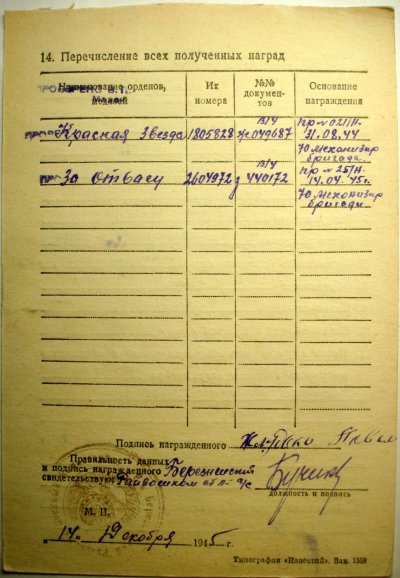 14. Перечисление всех полученных наград
Наименование орденов, медали
Их номера
№№ документов
Основание награждения
Красная Звезда 1805828 в/ч 049687 пр № 021/н.
31.08.44
70 механизир
бригада.
За отвагу 2604972 в/ч 440172 пр № 257н.
14.04.45г.
70 механизир
бригада
Подпись награжденного
Правильность данных
и подпись награжденного
свидетельствую Райвоенком
должность и подпись
М. П.
„14“ Декабря 1945 г.
Типография «Известий». Зак. 1559